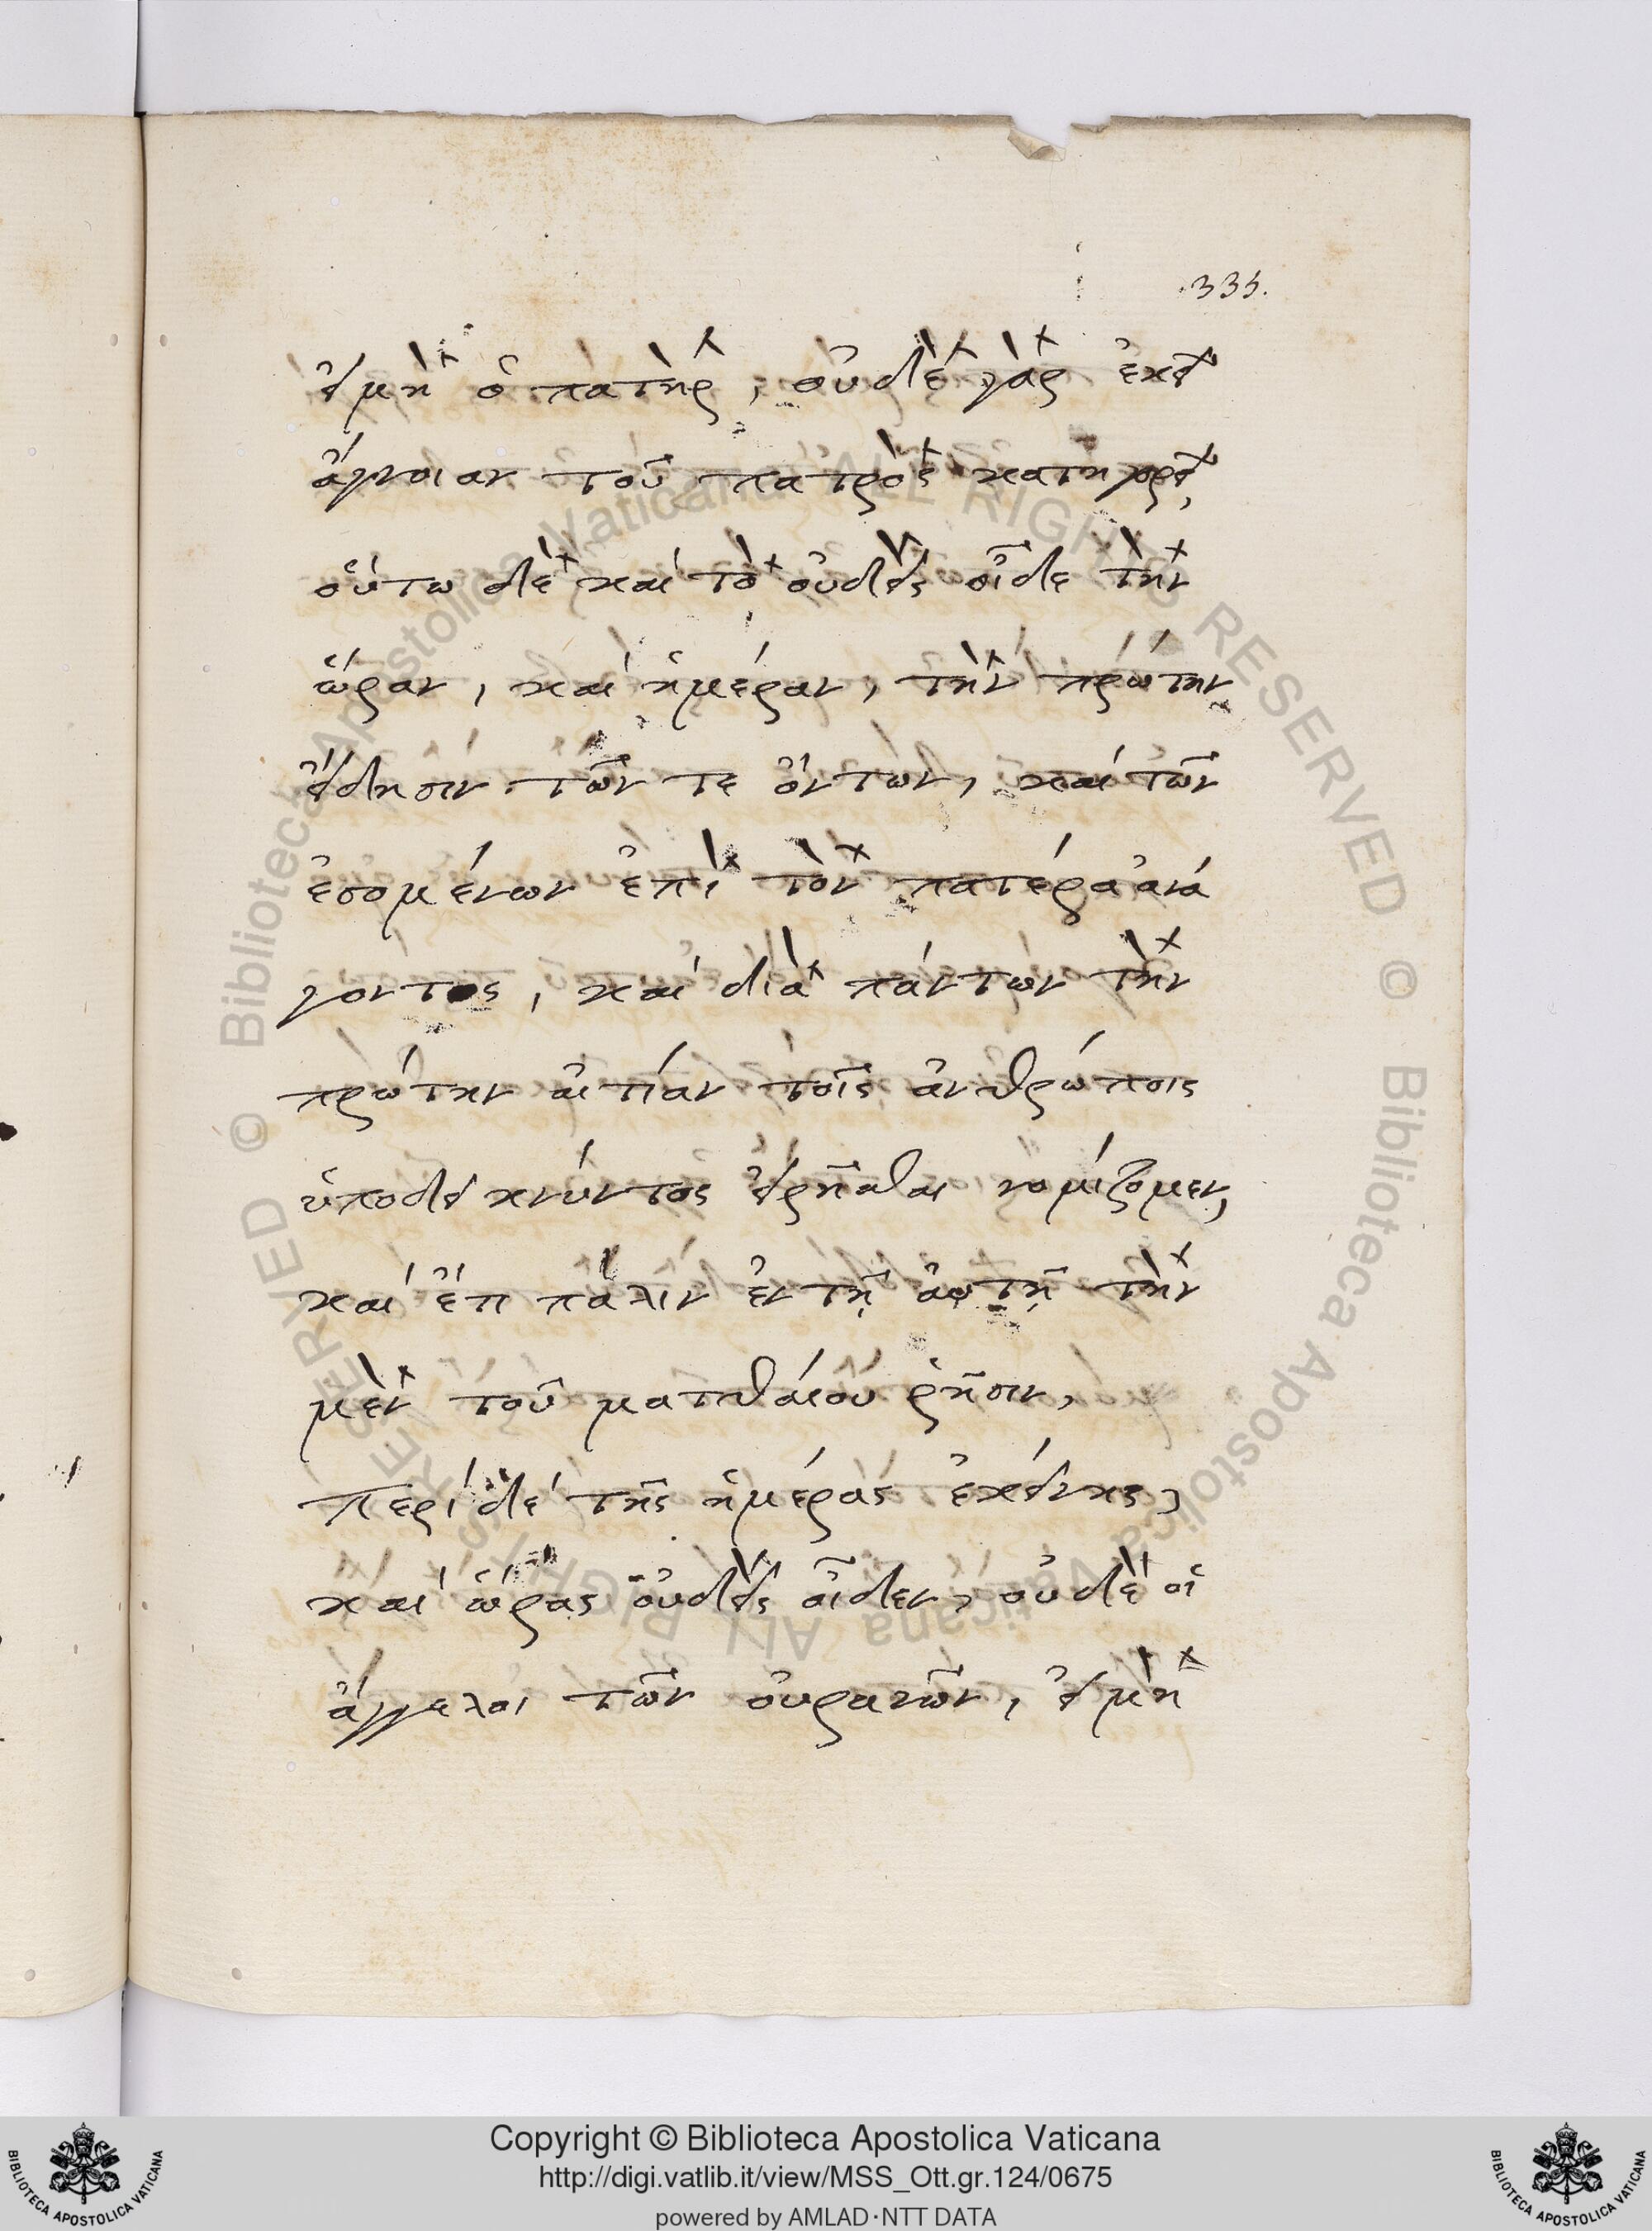 .335.
εἰμὴ ὁ πατὴρ, οὐδὲ γὰρ ἐκεῖ
ἄγνοιαν τοῦ πατρὸς κατηγορεῖ,
οὕτω δὲ καὶ τὸ οὐδεὶς οἶδε τὴν
ὥραν, καὶ ἡμέραν, τὴν πρώτην
εἴδησιν τῶν τε ὄντων, καὶ τῶν
ἐσομένων ἐπὶ τὸν πατέρα ἀνά
γοντος, καὶ διὰ πάντων τὴν
πρώτην αἰτίαν τοῖς ἀνθρώποις
ὑποδεικνύντος εἰρῆσθαι νομίζομεν,
καὶ ἔτι πάλιν ἐν τῇ αὐτῇ τὴν
μὲν τοῦ ματθαίου ῥῆσιν,
περὶ δὲ τῆς ἡμέρας ἐκείνης,
καὶ ὥρας οὐδεὶς οἶδεν, οὐδὲ οἱ
ἄγγελοι τῶν οὐρανῶν, εἰμὴ
© Biblioteca Apostolica Vaticana ALL RIGHTS RESERVED © Biblioteca Apostolica Vaticana ALL RIGHTS RESERVED
Copyright © Biblioteca Apostolica Vaticana
http://digi.vatlib.it/view/MSS_Ott.gr.124/0675
powered by AMLAD·NTT DATA
BIBLIOTECA APOSTOLICA VATICANA
BIBLIOTECA APOSTOLICA VATICANA